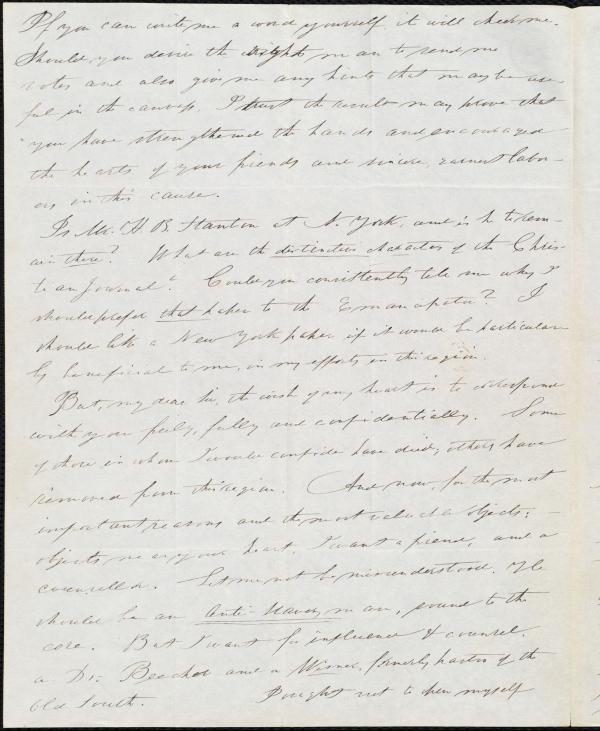 If you can write me a word yourself it will cheer me.
Should you desire the right man to send me
notes and also give me any hints that may be use-
ful in the canvass. I trust the result may prove that
you have strengthened the hands and encouraged
the hearts of your friends and sincere, earnest labor-
ers in this cause.
Is Mr. H. B. Stanton at N. York, and is he to rem-
ain there? What are the distinctive characters of the Chris-
tian Journal? Could you consistently tell me why I
should prefer that paper to the Emancipator? I
should like a New York paper if it would be particular-
ly beneficial to me, in my efforts in this region.
But, my dear Sir, the wish of my heart is to correspond
with you freely, fully and confidentially. Some
of those in whom I would confide have died; others have
removed from this region. And now, for the most
important reasons and the most valuable objects;
objects near your heart, I want a friend, and a
counsellor. Let me not be misunderstood. He
should be an Anti-Slavery man, sound to the
core. But I want for influence & counsel,
a Dr. Beecher and a Wisner, formerly pastor of the
Old South. I ought not to open myself